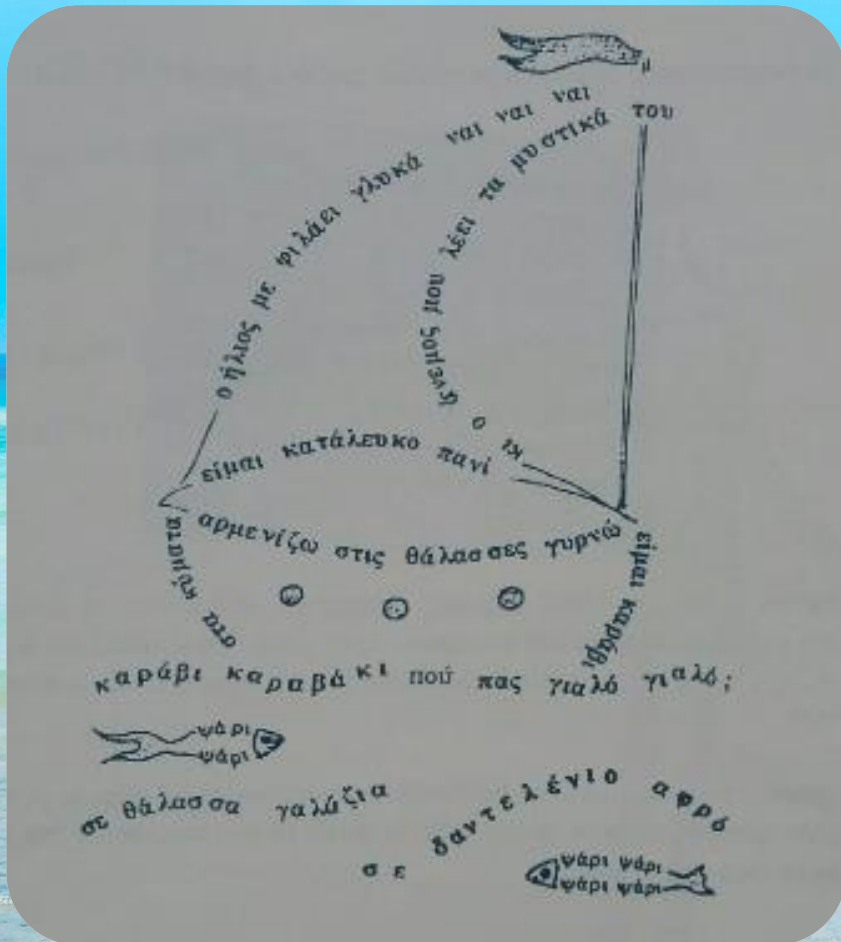 ο ήλιος με φιλάει γλυκά ναι ναι ναι
κι ο άνεμος που λέει τα μυστικά του
είμαι κατάλευκο πανί
αρμενίζω στις θάλασσες γυρνώ
είμαι καράβι
στα κύματα
καράβι καραβάκι πού πας γιαλό γιαλό;
ψάρι
ψάρι
σε θάλασσα γαλάζια
σε δαντελένιο αφρό
ψάρι ψάρι
ψάρι ψάρι